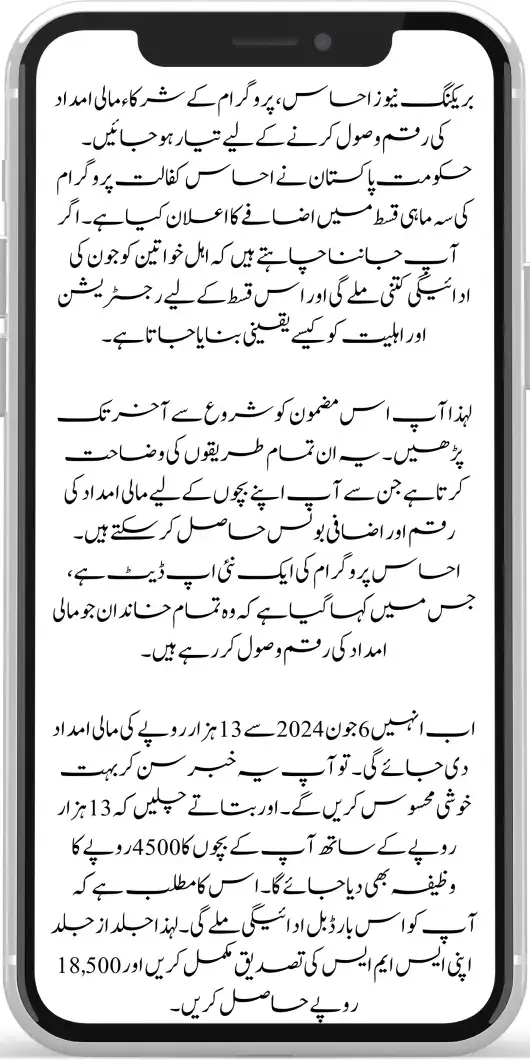 بریکنگ نیوز احساس، پروگرام کے شرکاء مالی امداد
کی رقم وصول کرنے کے لیے تیار ہو جائیں۔
حکومت پاکستان نے احساس کفالت پروگرام
کی سہ ماہی قسط میں اضافے کا اعلان کیا ہے۔ اگر
آپ جاننا چاہتے ہیں کہ اہل خواتین کو جون کی
ادائیگی کتنی ملے گی اور اس قسط کے لیے رجسٹریشن
اور اہلیت کو کیسے یقینی بنایا جاتا ہے۔
لہذا آپ اس مضمون کو شروع سے آخر تک
پڑھیں۔ یہ ان تمام طریقوں کی وضاحت
کرتا ہے جن سے آپ اپنے بچوں کے لیے مالی امداد کی
رقم اور اضافی بونس حاصل کر سکتے ہیں۔
احساس پروگرام کی ایک نئی اپ ڈیٹ ہے،
جس میں کہا گیا ہے کہ وہ تمام خاندان جو مالی
امداد کی رقم وصول کر رہے ہیں۔
اب انہیں 6 جون 2024 سے 13 ہزار روپے کی مالی امداد
دی جائے گی۔ تو آپ یہ خبر سن کر بہت
خوشی محسوس کریں گے۔ اور بتاتے چلیں کہ 13 ہزار
روپے کے ساتھ آپ کے بچوں کا 4500 روپے کا
وظیفہ بھی دیا جائے گا۔ اس کا مطلب ہے کہ
آپ کو اس بار ڈبل ادائیگی ملے گی۔ لہذا جلد از جلد
اپنی ایس ایم ایس کی تصدیق مکمل کریں اور 18,500
روپے حاصل کریں۔